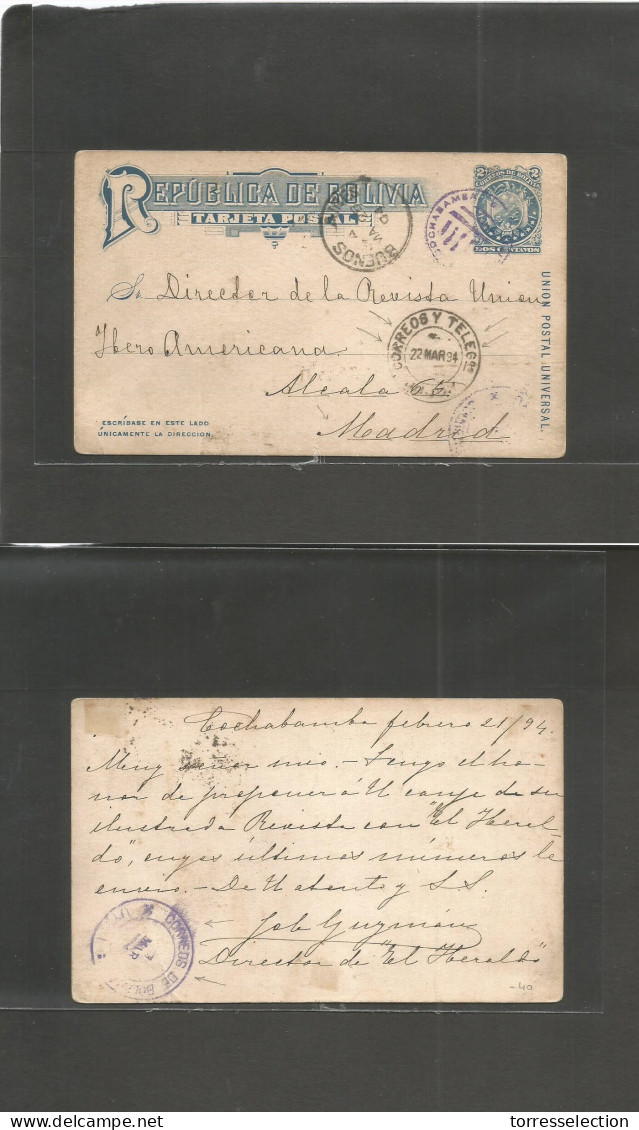 REPÚBLICA DE BOLIVIA
TARJETA POSTAL
2 CORREOS DE BOLIVIA 2
DOS CENTAVOS
COCHABAMBA
BUENOS AIRES
UNION POSTAL UNIVERSAL.
Sr. Director de la Revista Union
Ibero Americana.
CORREOS Y TELEGOS
22 MAR 94
Alcala
Madrid
ESCRÍBASE EN ESTE LADO
ÚNICAMENTE LA DIRECCION.
Cochabamba febrero 21/94.
Muy señor mio. – Tengo el ho-
nor de proponer á U canje de su
ilustrada Revista con "El Heral-
do", cuyos últimos números le
envio. – De U atento y S.S.
Guzmán
Director de "El Heraldo"
CORREOS DE
MAR
-40
torresselection